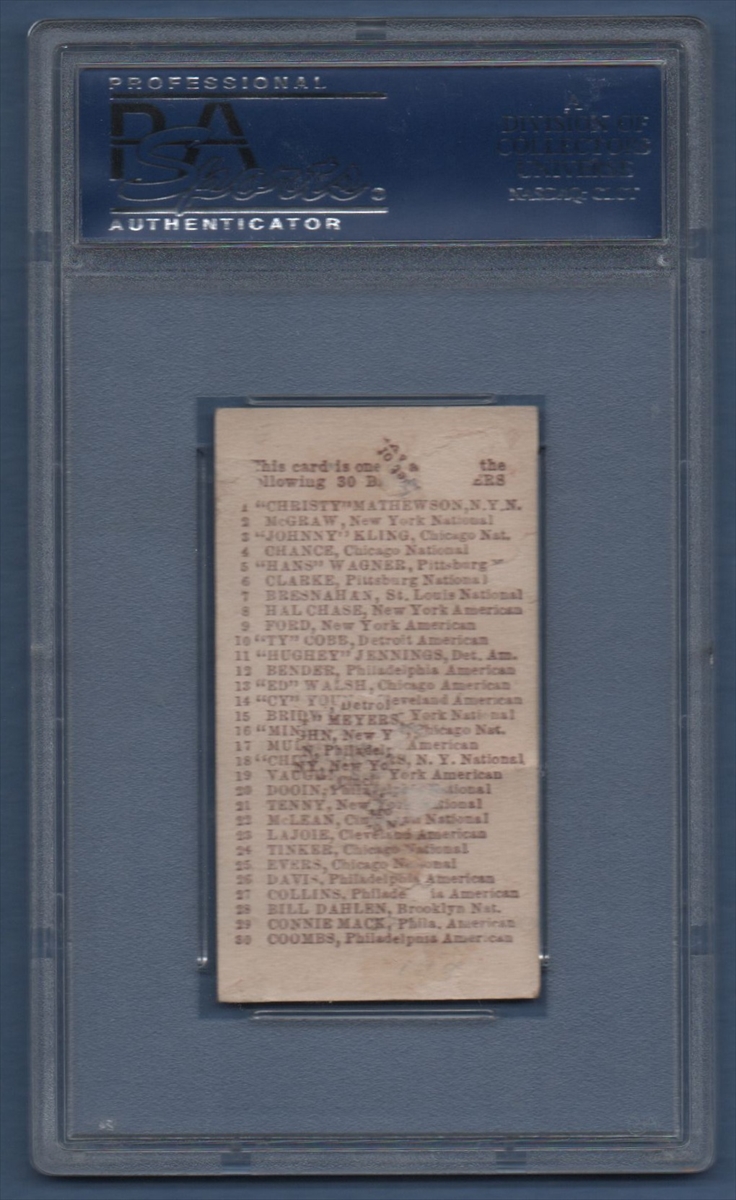 PROFESSIONAL
PSA
Sports
AUTHENTICATOR
A
DIVISION OF
COLLECTORS
UNIVERSE
NASDAQ: CLCT
his card is one the
llowing 30 B ERS
1 "CHRISTY" MATHEWSON, N.Y.N.
2 McGRAW, New York National
3 "JOHNNY" KLING, Chicago Nat.
4 CHANCE, Chicago National
5 "HANS" WAGNER, Pittsburg
6 CLARKE, Pittsburg National
7 BRESNAHAN, St. Louis National
8 HAL CHASE, New York American
9 FORD, New York American
10 "TY" COBB, Detroit American
11 "HUGHEY" JENNINGS, Det. Am.
12 BENDER, Philadelphia American
13 "ED" WALSH, Chicago American
14 "CY" YOU eveland American
Detroi
15 BRID York National
MEYERS,
16 "MIN hicago Nat.
OHN, New Y
17 MU American
N, Philadel
18 "CH S, N. Y. National
NY, New Yo
19 VAUG York American
20 DOOIN, tional
21 TENNY, New tional
22 McLEAN, Cin National
23 LAJOIE, Cleveland American
24 TINKER, Chicago National
25 EVERS, Chicago National
26 DAVIS, Philadelphia American
27 COLLINS, Philade ia American
28 BILL DAHLEN, Brooklyn Nat.
29 CONNIE MACK, Phila. American
30 COOMBS, Philadelphia American